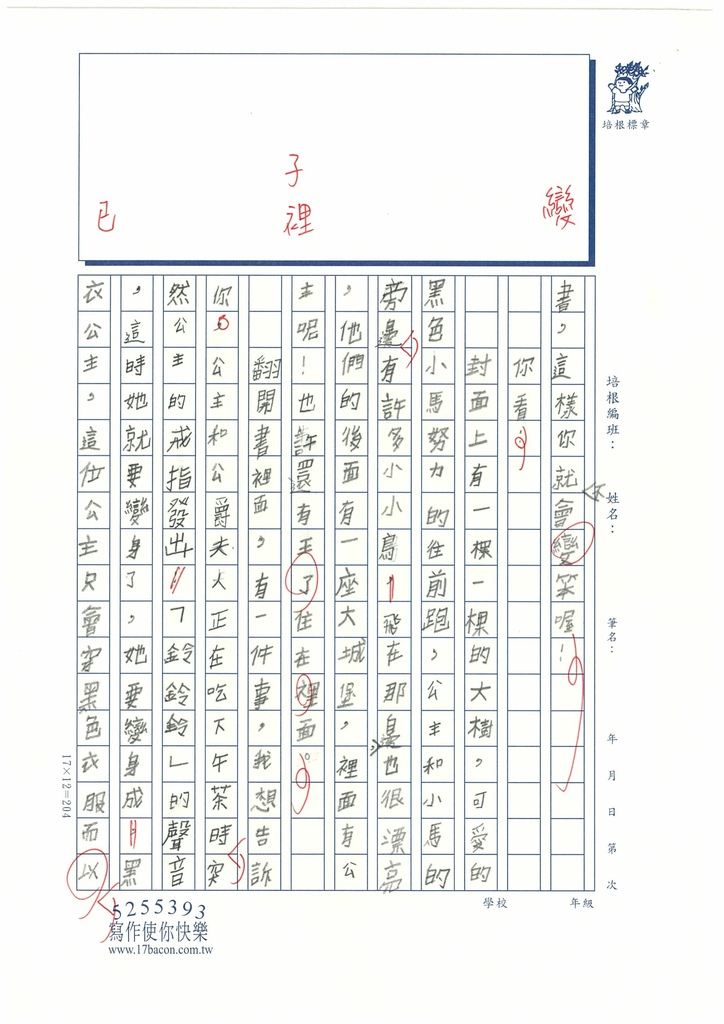 培根標章
變
子
裡
已
書，這樣你就會變笨喔！
你看，
封面上有一棵一棵的大樹，可愛的
黑色小馬努力的往前跑，公主和小馬的
旁邊有許多小小鳥飛在那邊也很漂亮
，他們的後面有一座大城堡，裡面有公
主呢！也許還有王了住在裡面。
翻開書裡面，有一件事，我想告訴
你，公主和公爵夫人正在吃下午茶時突
然公主的戒指發出「鈴鈴鈴」的聲音
，這時她就要變身了，她要變身成黑
衣公主，這位公主只會穿黑色衣服而以
培根編班：
姓名：
筆名：
年 月 日 第 次
學校
年級
17×12=204
5255393
寫作使你快樂
www.17bacon.com.tw